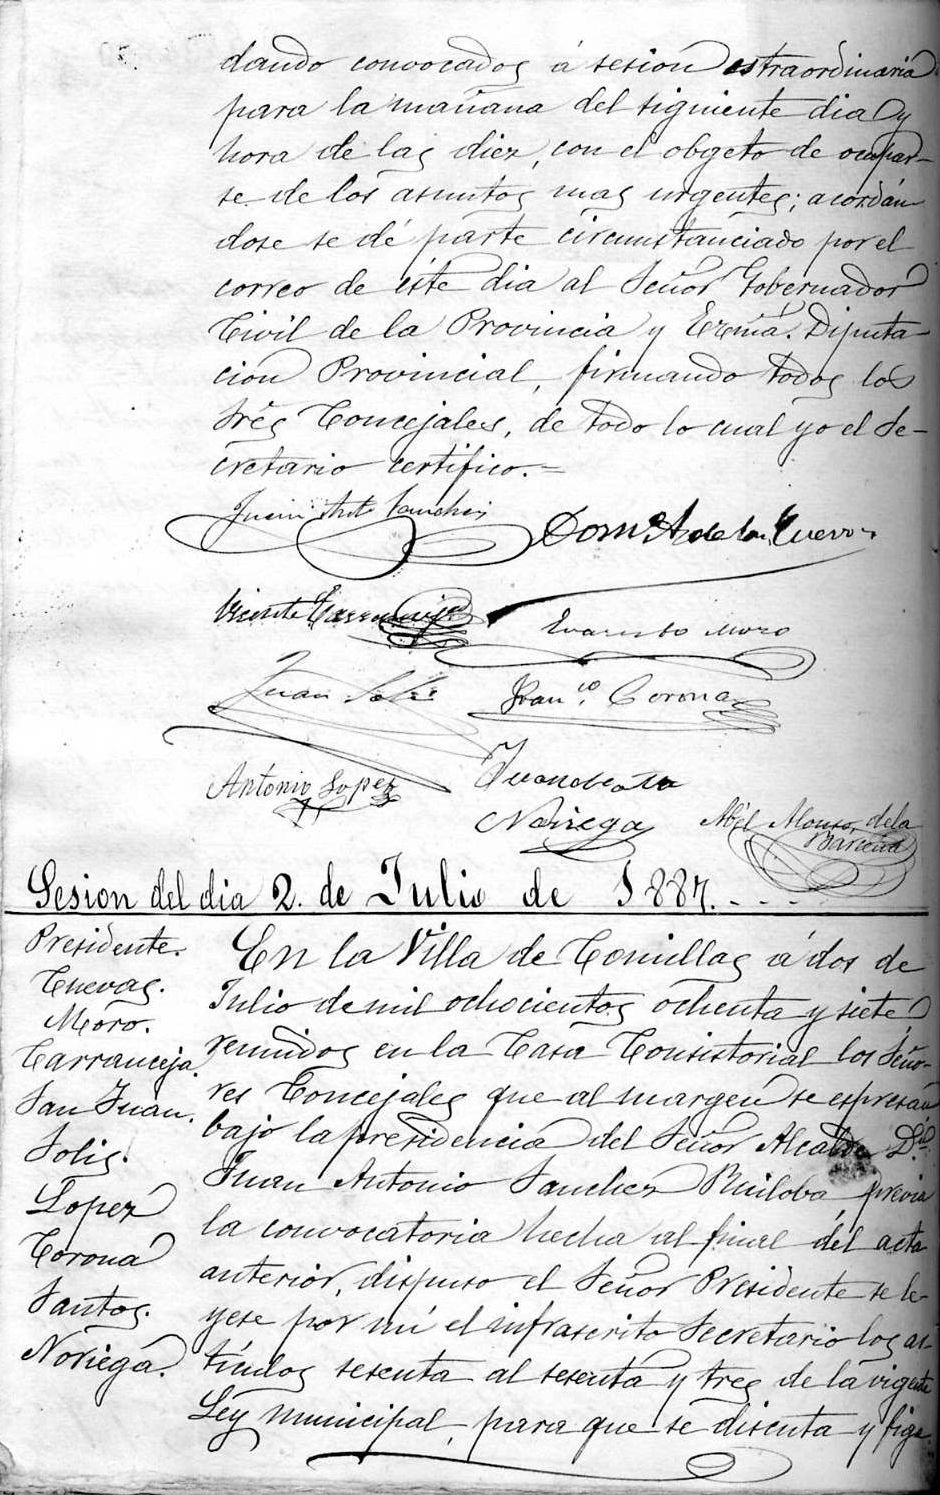 dando convocados á sesion estraordinaria
para la mañana del siguiente dia y
hora de las diez, con el obgeto de ocupar-
se de los asuntos mas urgentes; acordán-
dose se dé parte circunstanciado por el
correo de éste dia al Señor Gobernador
Civil de la Provincia y Excmá. Diputa-
cion Provincial, firmando todos los
Srēs Concejales, de todo lo cual yo el Se-
cretario certifico.=
Juan Antº Sanchez
Domº A de la Cueva
Vicente Carranceja
Evaristo Moro
Juan Solis
Franco. Corona
Antonio Lopez
Noriega
Abél Alonso, de la
Barcena
Sesion del dia 2. de Julio de 1887. - - - -
Presidente.
Cuevas.
Moro.
Carranceja.
San Juan.
Solis.
Lopez
Corona
Santos.
Noriega.
En la Villa de Comillas á dos de
Julio de mil ochocientos ochenta y siete
reunidos en la Casa Consistorial los Seño-
res Concejales que al margen se espresan
bajo la presidencia del Señor Alcalde D.
Juan Antonio Sanchez Ruiloba previa
la convocatoria hecha al final del acta
anterior, dispuso el Señor Presidente se le-
yese por mí el infrascrito Secretario los ar-
tículos sesenta al sesenta y tres de la vigente
Ley municipal, para que se discuta y fige